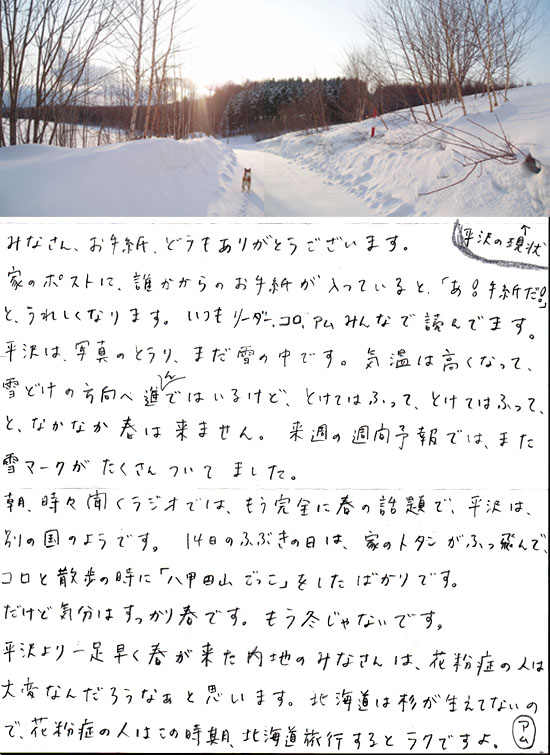 みなさん、お手紙、どうもありがとうございます。
平沢の現状
家のポストに、誰かからのお手紙が入っていると、「あ!手紙だ!」
と、うれしくなります。いつもリーダー、コロ、アムみんなで読んでます。
平沢は、写真のとうり、まだ雪の中です。気温は高くなって、
雪どけの方向へ進んではいるけど、とけてはふって、とけてはふって、
と、なかなか春は来ません。来週の週間予報では、また
雪マークがたくさんついてました。
朝、時々聞くラジオでは、もう完全に春の話題で、平沢は、
別の国のようです。14日のふぶきの日は、家のトタンがふっ飛んで、
コロと散歩の時に「八甲田山ごっこ」をしたばかりです。
だけど気分はすっかり春です。もう冬じゃないです。
平沢より一足早く春が来た内地のみなさんは、花粉症の人は
大変なんだろうなぁと思います。北海道は杉が生えてないの
で、花粉症の人はこの時期、北海道旅行するとラクですよ。アム